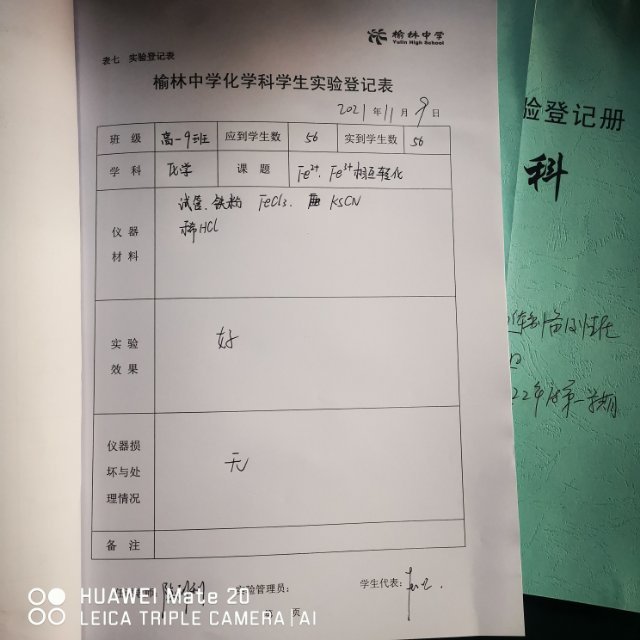 榆林中学
Yulin High School
表七 实验登记表
榆林中学化学科学生实验登记表
2021 年 11 月 9 日
班 级 高一9班 应到学生数 56 实到学生数 56
学 科 化学 课 题 Fe²⁺、Fe³⁺相互转化
仪器材料 试管、铁粉 FeCl₃、 KSCN
稀HCl
实验效果 好
仪器损坏与处理情况 无
备 注
实验管理员: 学生代表:
页
验登记册
科
22年 第一学期
HUAWEI Mate 20
LEICA TRIPLE CAMERA | AI